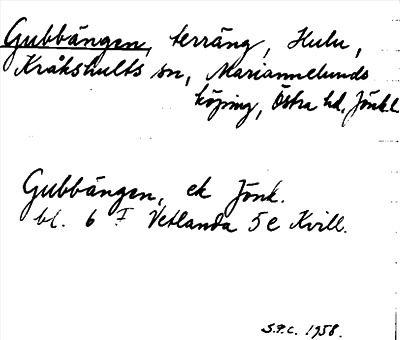 Gubbängen, terräng, Hulu,
Kråkshults sn, Mariannelunds
köping, Östra hd, Jönk.l
Gubbängen, ek Jönk.
bl. 6 I Vetlanda 5e Kvill.
S.P.C. 1958.